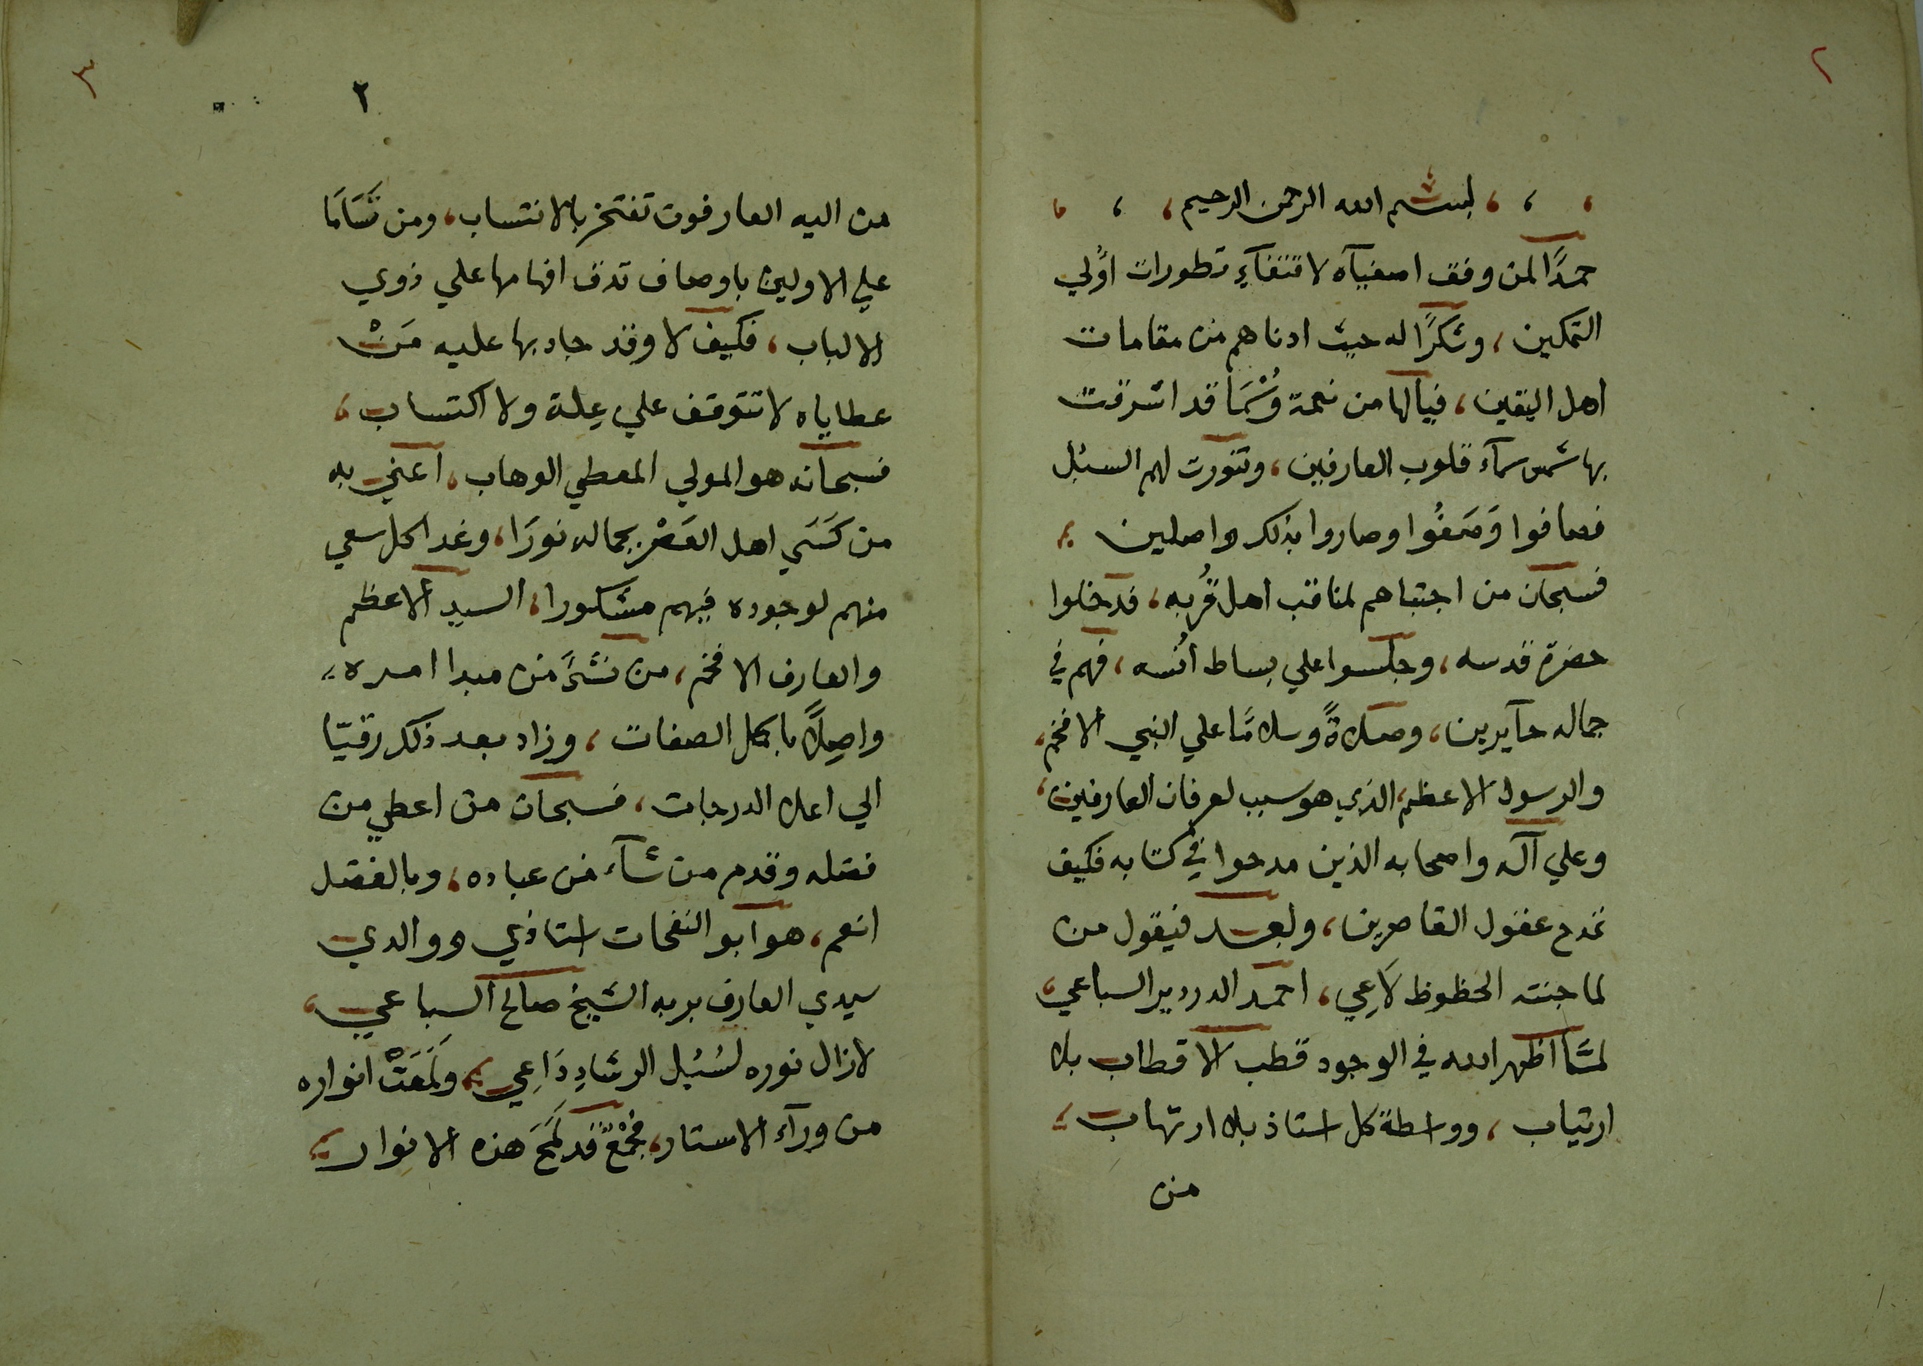 ٢
بسم الله الرحمن الرحيم،
حمدًا لمن وفق اصفيآه لاقتفآءِ تطورات اوُلي
التمكين، وشكرًا له حيث ادناهم من مقامات
اهل اليقين، فيالها من نعمة وُسْمَا قد اشرقت
بها شمس سمآء قلوب العارفين، وتنورت لهم السبُل
فصافوا وَصَفُوا وصاروا بذلك واصلين ؛
فسبحان من اجتباهم لمناقب اهل قُربه، فدخلوا
حضرة قدسه، وجلسوا علي بساط انُسه، فهم في
جماله حآيرين، وصلاةً وسلامًا علي النبي الافخم،
والرسول الاعظم، الذي هو سبب لعرفان العارفين،
وعلي آله واصحابه الذين مدحوا في كتابه فكيف
تمدح عقول القاصرين، وبعد فيقول من
لما جنته الحظوظ لَاعِي، احمد الدردير السباعي،
لمَّا اظهر الله في الوجود قطب الاقطاب بلا
ارتياب، وواسطة كل استاذ بلا ارتهاب؛
من
٣
٢
من اليه العارفون تفتخر بالانتساب، ومن تَسَامَا
علي الاولين باوصاف تدق افهامها علي ذوي
الالباب، فكيف لا وقد جاد بها عليه مَنْ
عطاياه لا تتوقف علي عِلة ولا اكتساب،
فسبحانه هو المولي المعطي الوهاب، اعني به
من كَسَي اهل العَصْر بجماله نورَا، وغدا كل سعي
منهم لوجوده فيهم مشكورا، السيد الاعظم
والعارف الافخم، من نشَأَ من مبدا امره
واصِلًا باكمل الصفات، وزاد بعد ذلك رقيّا
الي اعلا الدرجات، فسبحان من اعطي من
فضله وقدم من شآء من عباده، وبالفضل
انعم، هو ابو النفحات استاذي ووالدي
سيدي العارف بربه الشيخ صالح السباعي،
لازال نوره لسُبُل الرشادِ دَاعِي؛ ولَمَعَتْ انواره
من ورآء الاستار، فجَمْعٌ قد لَمَحَ هذه الانوار؛